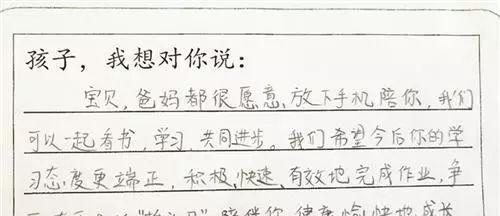 孩子，我想对你说：
宝贝，爸妈都很愿意放下手机陪你，我们
可以一起看书，学习，共同进步。我们希望今后你的学
习态度更端正，积极、快速、有效地完成作业，争
陪伴你 健康 愉快地成长